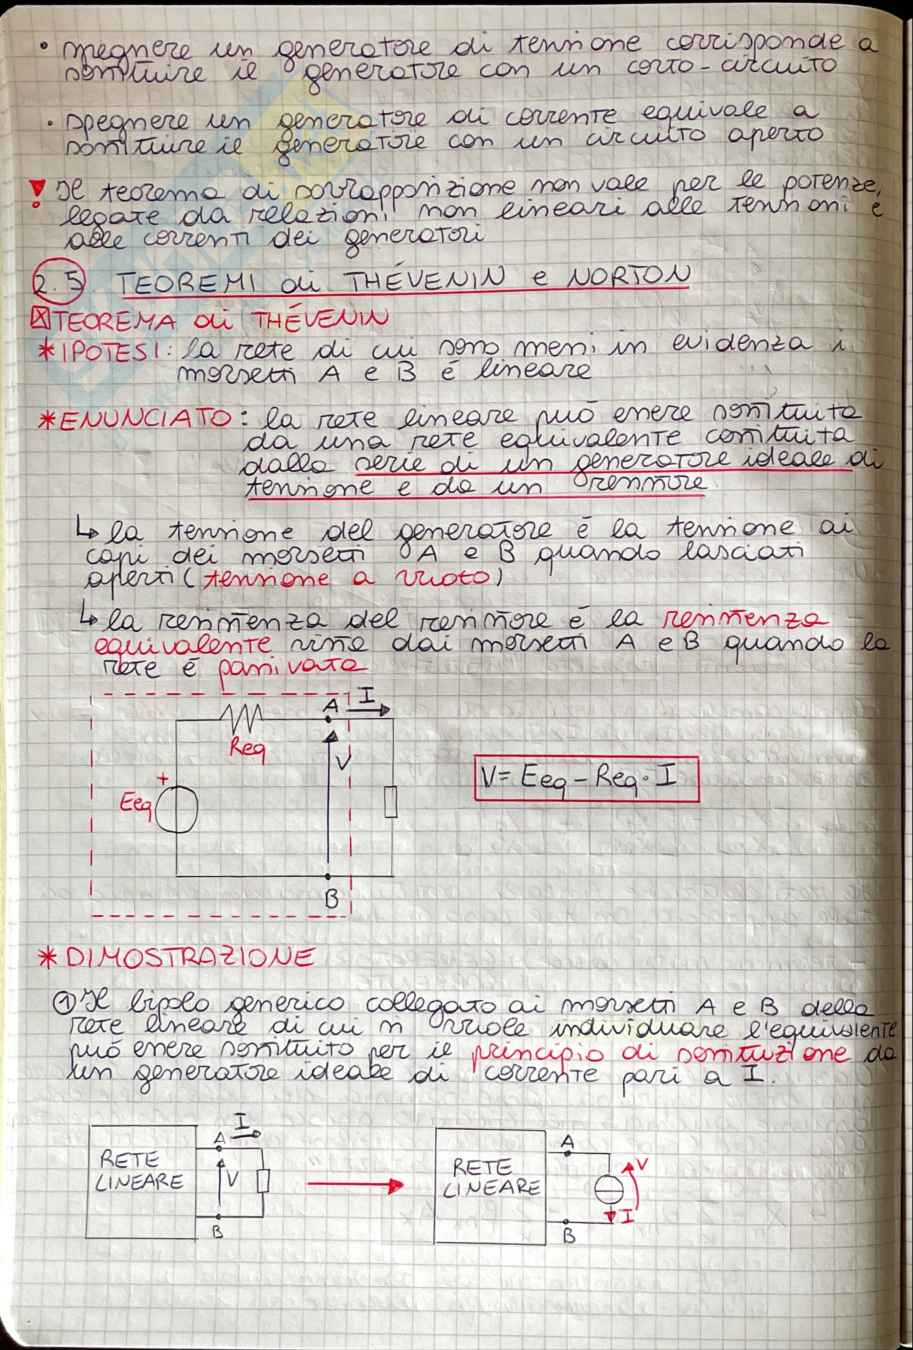 • spegnere un generatore di tensione corrisponde a
sostituire il generatore con un corto-circuito
• spegnere un generatore di corrente equivale a
sostituire il generatore con un circuito aperto
! Il teorema di sovrapposizione non vale per le potenze,
legate da relazioni non lineari alle tensioni e
alle correnti dei generatori
2.5 TEOREMI di THÉVENIN e NORTON
TEOREMA di THÉVENIN
*IPOTESI: la rete di cui sono messi in evidenza i
morsetti A e B è lineare
*ENUNCIATO: la rete lineare può essere sostituita
da una rete equivalente costituita
dalla serie di un generatore ideale di
tensione e da un resistore.
↳ la tensione del generatore è la tensione ai
capi dei morsetti A e B quando lasciati
aperti (tensione a vuoto)
↳ la resistenza del resistore è la resistenza
equivalente vista dai morsetti A e B quando la
rete è passivata
A I
Req
V
+
Eeq
V = Eeq - Req · I
B
*DIMOSTRAZIONE
① Il bipolo generico collegato ai morsetti A e B della
rete lineare di cui si vuole individuare l'equivalente
può essere sostituito per il principio di sostituzione da
un generatore ideale di corrente pari a I.
A I
RETE
LINEARE
V
B
A
RETE
LINEARE
V
I
B